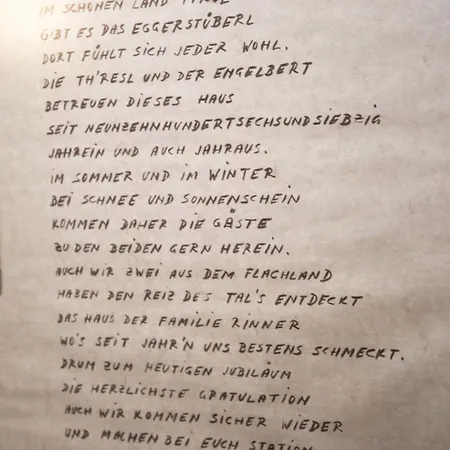 IM SCHÖNEN LAND TIROL
GIBT ES DAS EGGERSTÜBERL
DORT FÜHLT SICH JEDER WOHL.
DIE TH'RESL UND DER ENGELBERT
BETREUEN DIESES HAUS
SEIT NEUNZEHNHUNDERTSECHSUNDSIEBZIG
JAHREIN UND AUCH JAHRAUS.
IM SOMMER UND IM WINTER
BEI SCHNEE UND SONNENSCHEIN
KOMMEN DAHER DIE GÄSTE
ZU DEN BEIDEN GERN HEREIN.
AUCH WIR ZWEI AUS DEM FLACHLAND
HABEN DEN REIZ DES TAL'S ENTDECKT
DAS HAUS DER FAMILIE RINNER
WO'S SEIT JAHR'N UNS BESTENS SCHMECKT.
DRUM ZUM HEUTIGEN JUBILÄUM
DIE HERZLICHSTE GRATULATION
AUCH WIR KOMMEN SICHER WIEDER
UND MACHEN BEI EUCH STATION